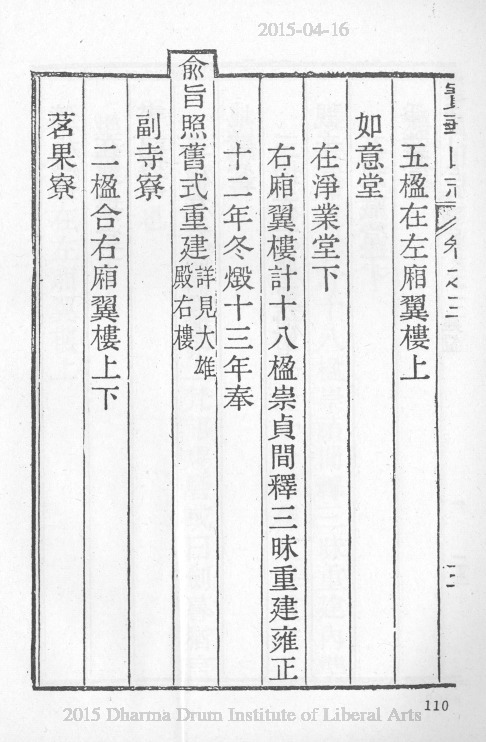 2015-04-16
寶華山志 卷之三 三
五楹在左廂翼樓上
如意堂
在淨業堂下
右廂翼樓計十八楹崇貞間釋三昧重建雍正
十二年冬燬十三年奉
俞旨照舊式重建詳見大雄殿右樓
副寺寮
二楹合右廂翼樓上下
茗果寮
110
2015 Dharma Drum Institute of Liberal Arts